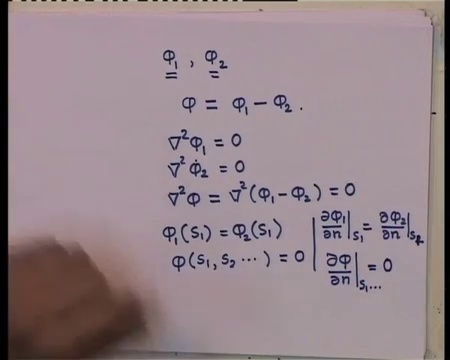 φ₁ , φ₂
φ = φ₁ − φ₂ .
∇²φ₁ = 0
∇²φ₂ = 0
∇²φ = ∇²(φ₁ − φ₂) = 0
φ₁(S₁) = φ₂(S₁) | ∂φ₁/∂n |S₁ = ∂φ₂/∂n |S₂
φ(S₁, S₂ ⋯) = 0 | ∂φ/∂n |S₁... = 0